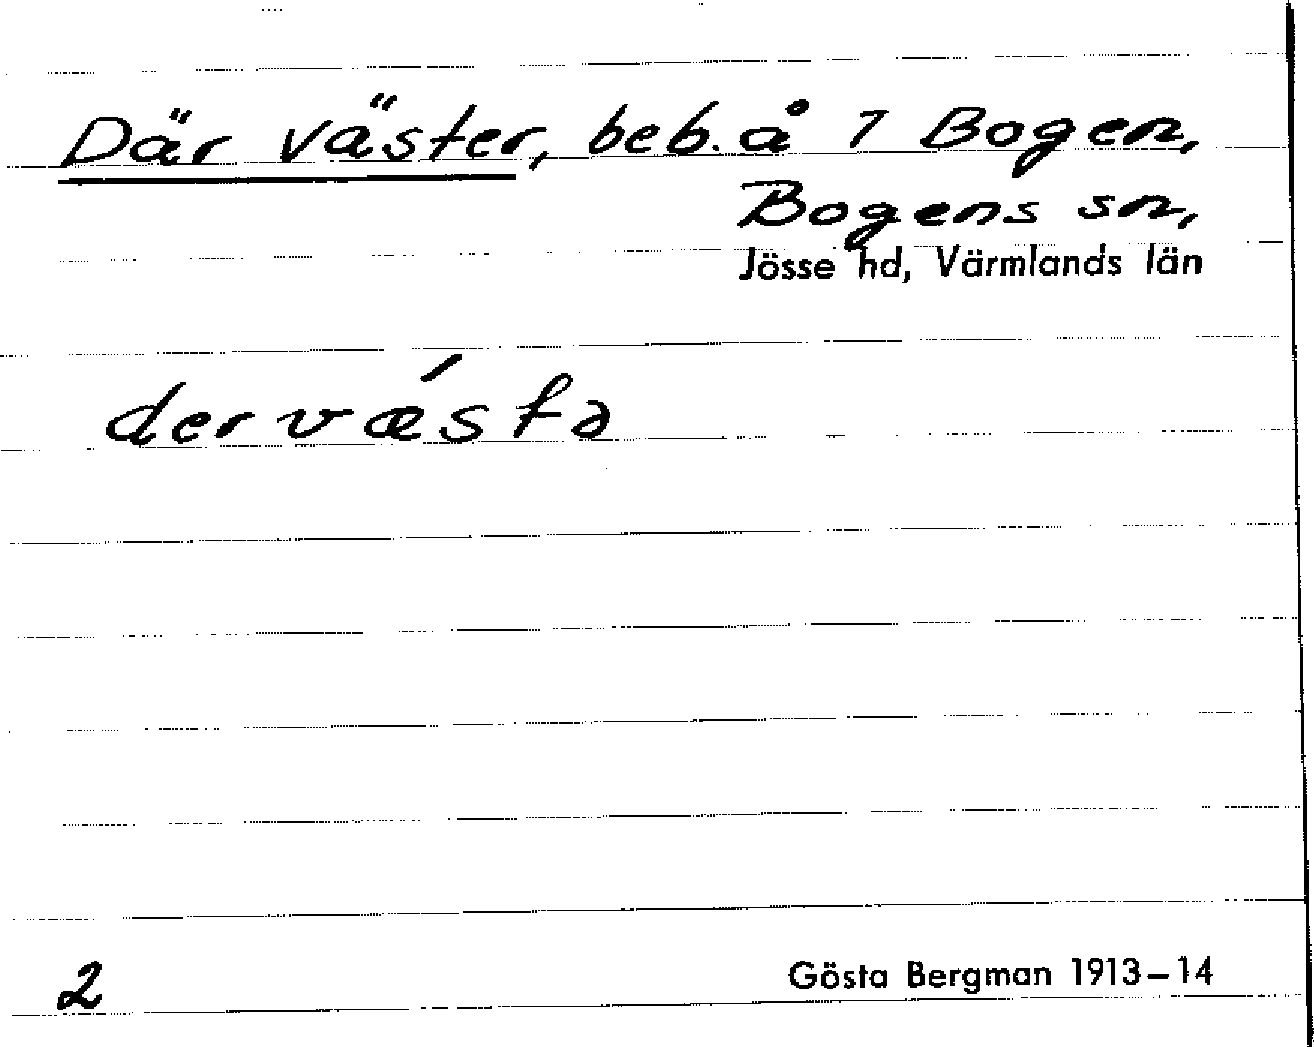 Där väster, beb. å 7 Bogen,
Bogens sn,
Jösse hd, Värmlands län
dervǽstə
2
Gösta Bergman 1913–14